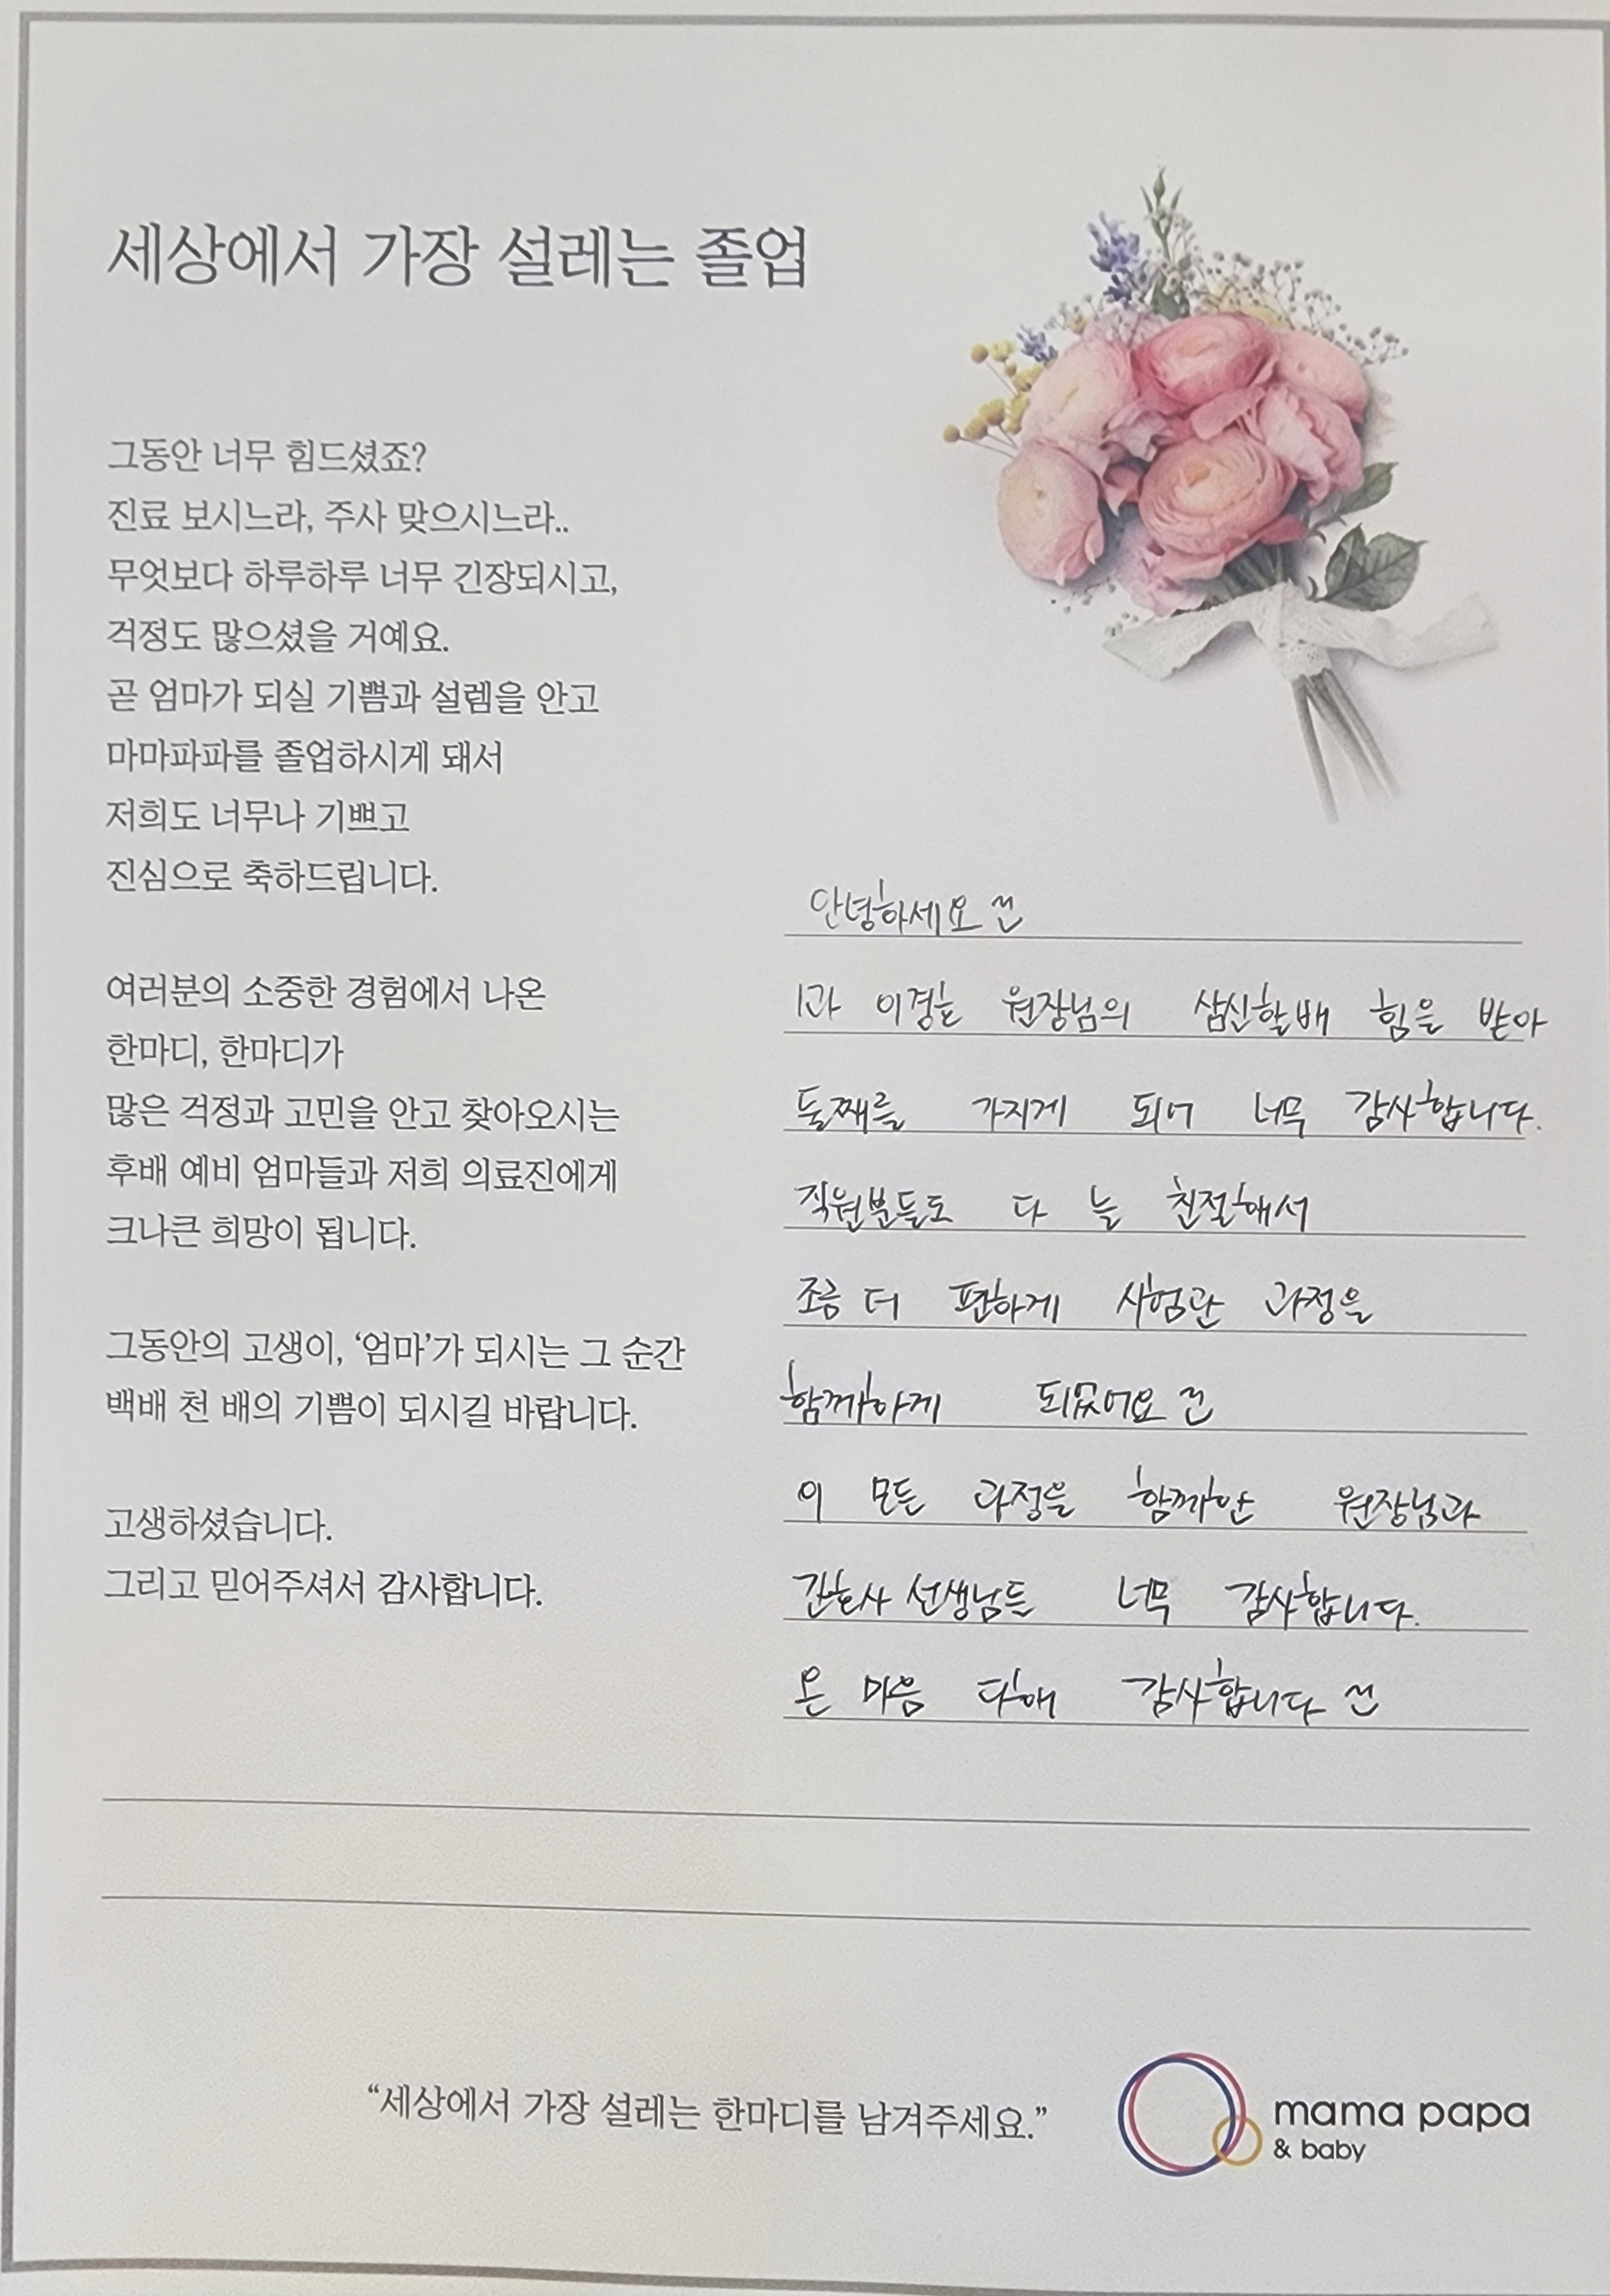 세상에서 가장 설레는 졸업
그동안 너무 힘드셨죠?
진료 보시느라, 주사 맞으시느라..
무엇보다 하루하루 너무 긴장되시고,
걱정도 많으셨을 거예요.
곧 엄마가 되실 기쁨과 설렘을 안고
마마파파를 졸업하시게 돼서
저희도 너무나 기쁘고
진심으로 축하드립니다.
여러분의 소중한 경험에서 나온
한마디, 한마디가
많은 걱정과 고민을 안고 찾아오시는
후배 예비 엄마들과 저희 의료진에게
크나큰 희망이 됩니다.
그동안의 고생이, ‘엄마’가 되시는 그 순간
백배 천 배의 기쁨이 되시길 바랍니다.
고생하셨습니다.
그리고 믿어주셔서 감사합니다.
안녕하세요
1과 원장님의 삼신할배 힘을 받아
둘째를 가지게 되어 너무 감사합니다.
직원분들도 다 늘 친절해서
조금 더 편하게 시험관 과정을
함께하게 되었어요
이 모든 과정을 함께한 원장님과
간호사 선생님들 너무 감사합니다.
온 마음 다해 감사합니다
“세상에서 가장 설레는 한마디를 남겨주세요.”
mama papa
& baby